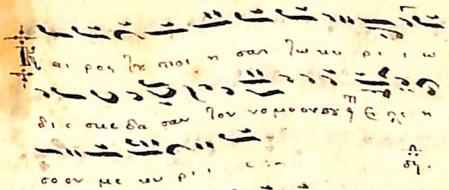 Και ρος τȣ ποι η σαι τω κυ ρι ι ω
δι ε σκε δα σαν τον νο μο ον σου ε λε η
σο ον με κυ ρι ι ε :~